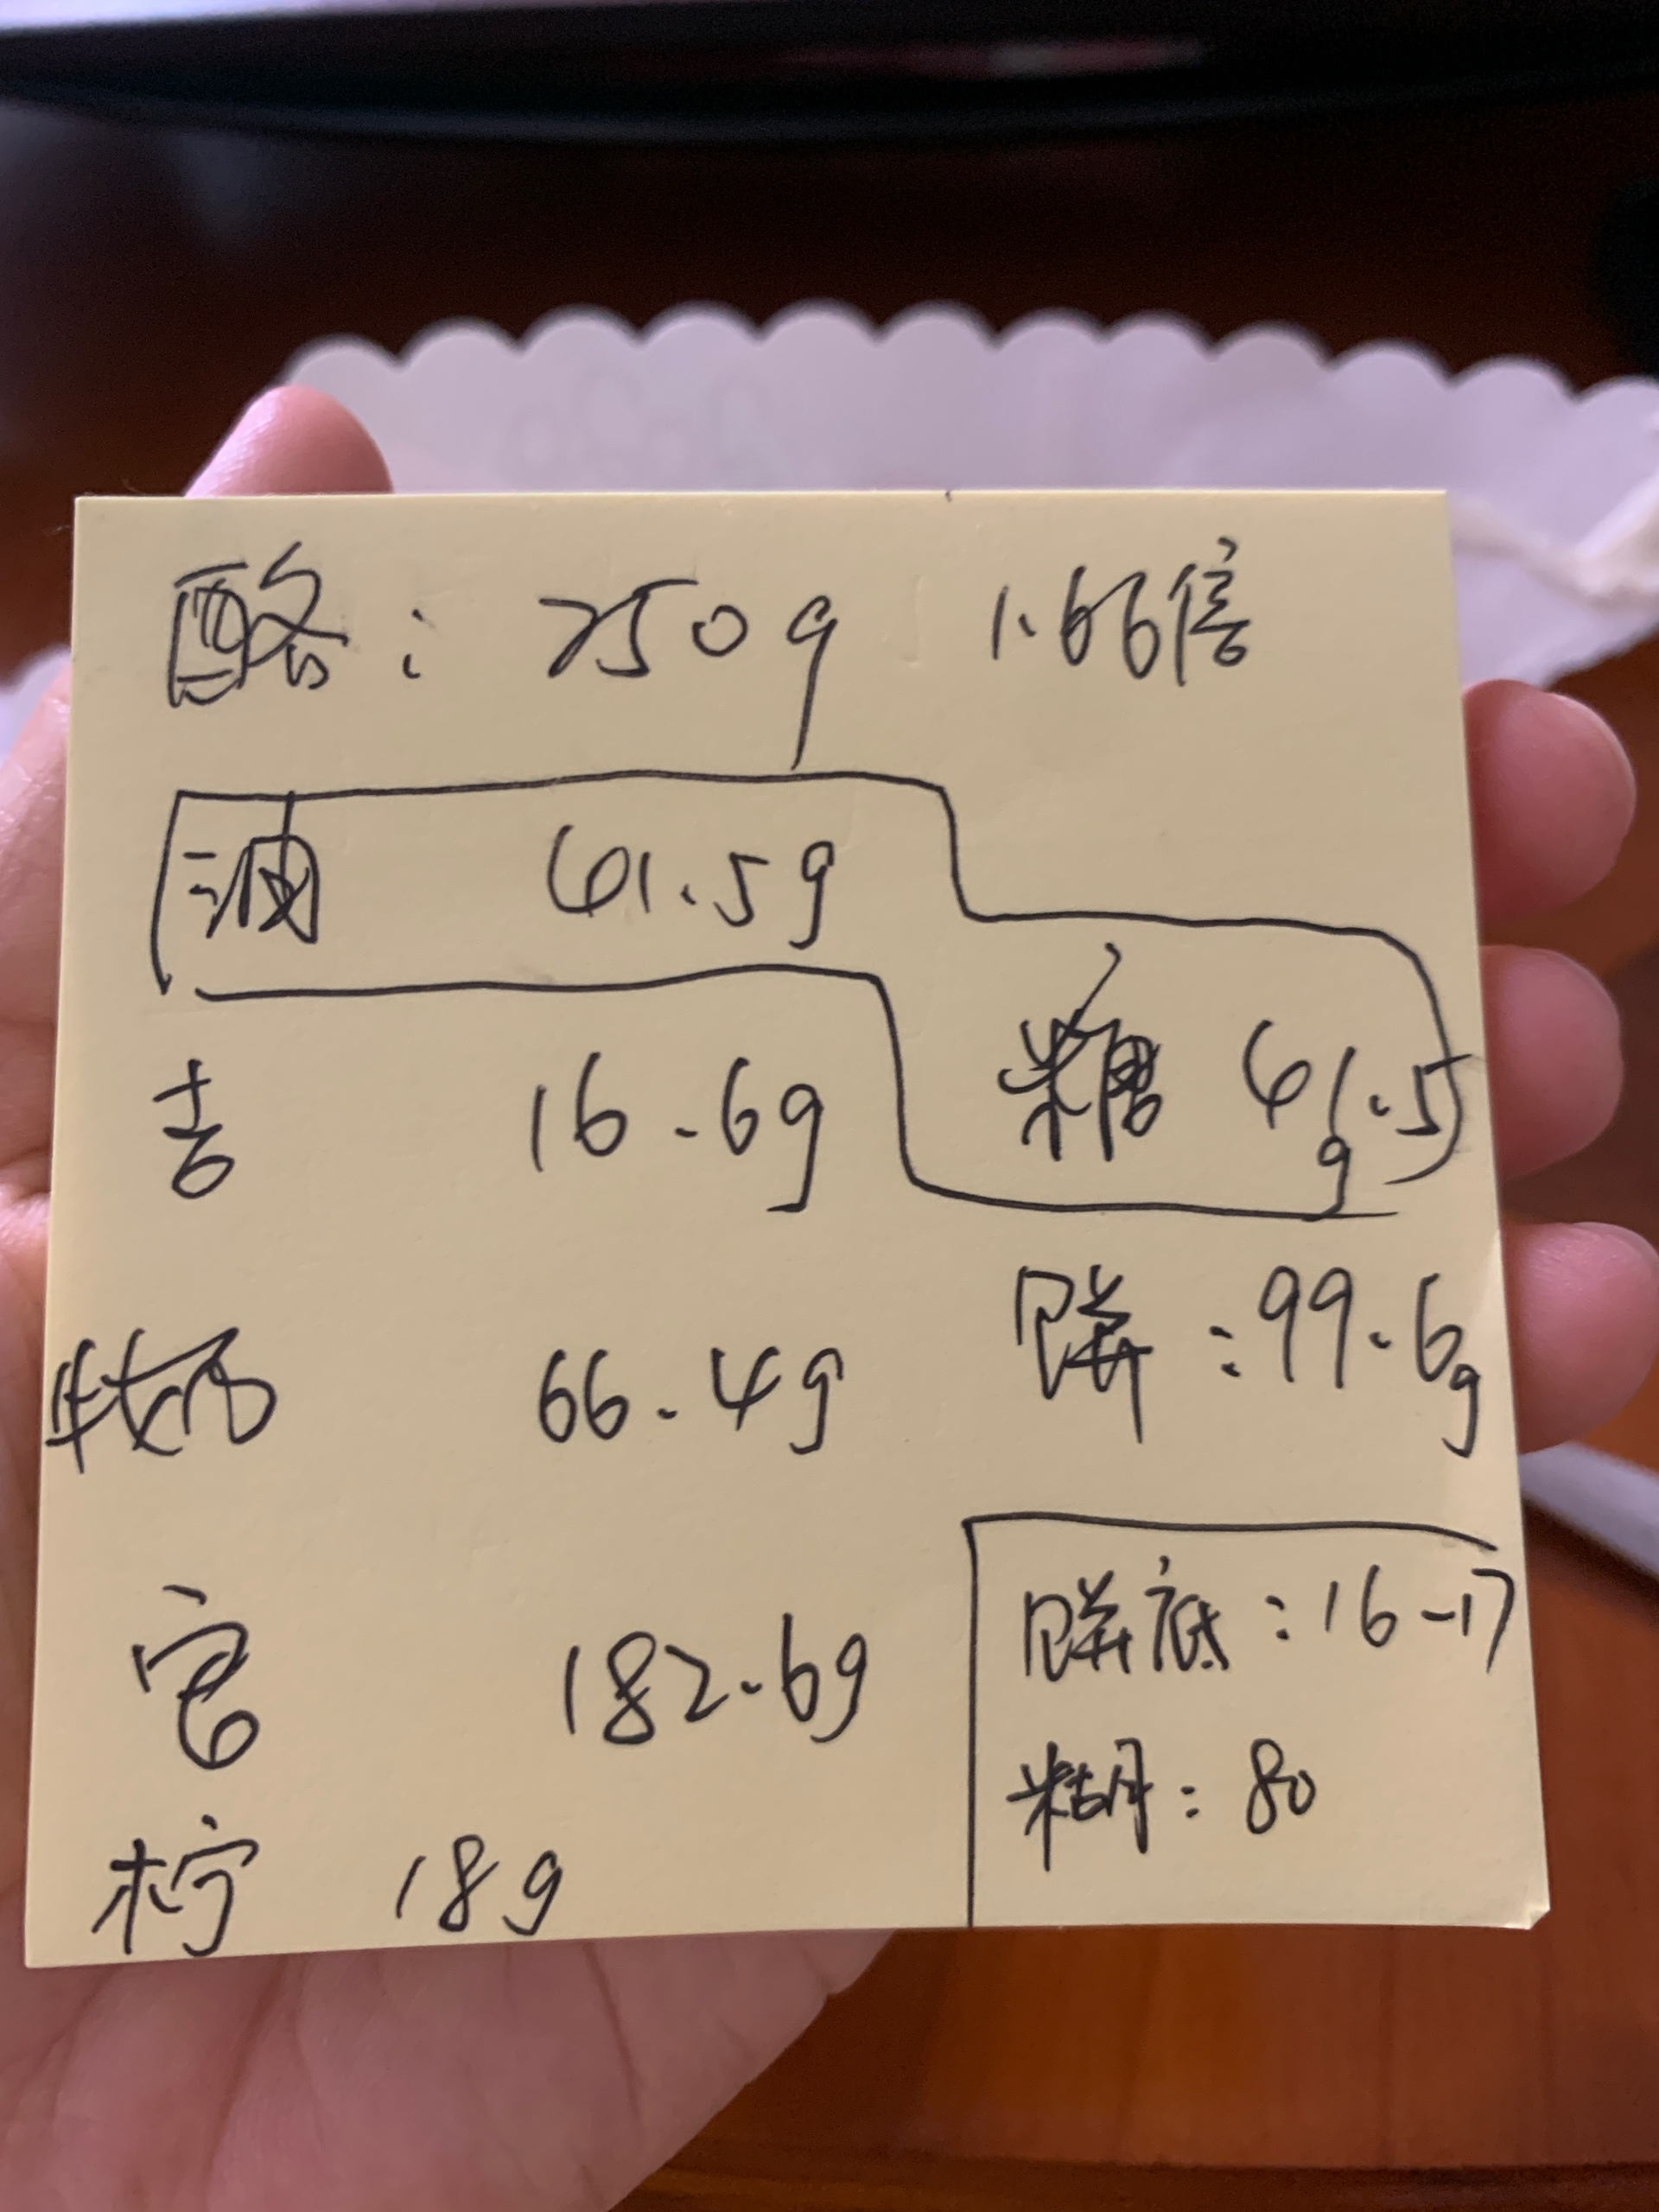 酪：250g 1.66倍
油 61.5g
糖 61.5g
吉 16.6g
饼：99.6g
牧奶 66.4g
饼底：16-17
182.6g
糊：80
柠 18g